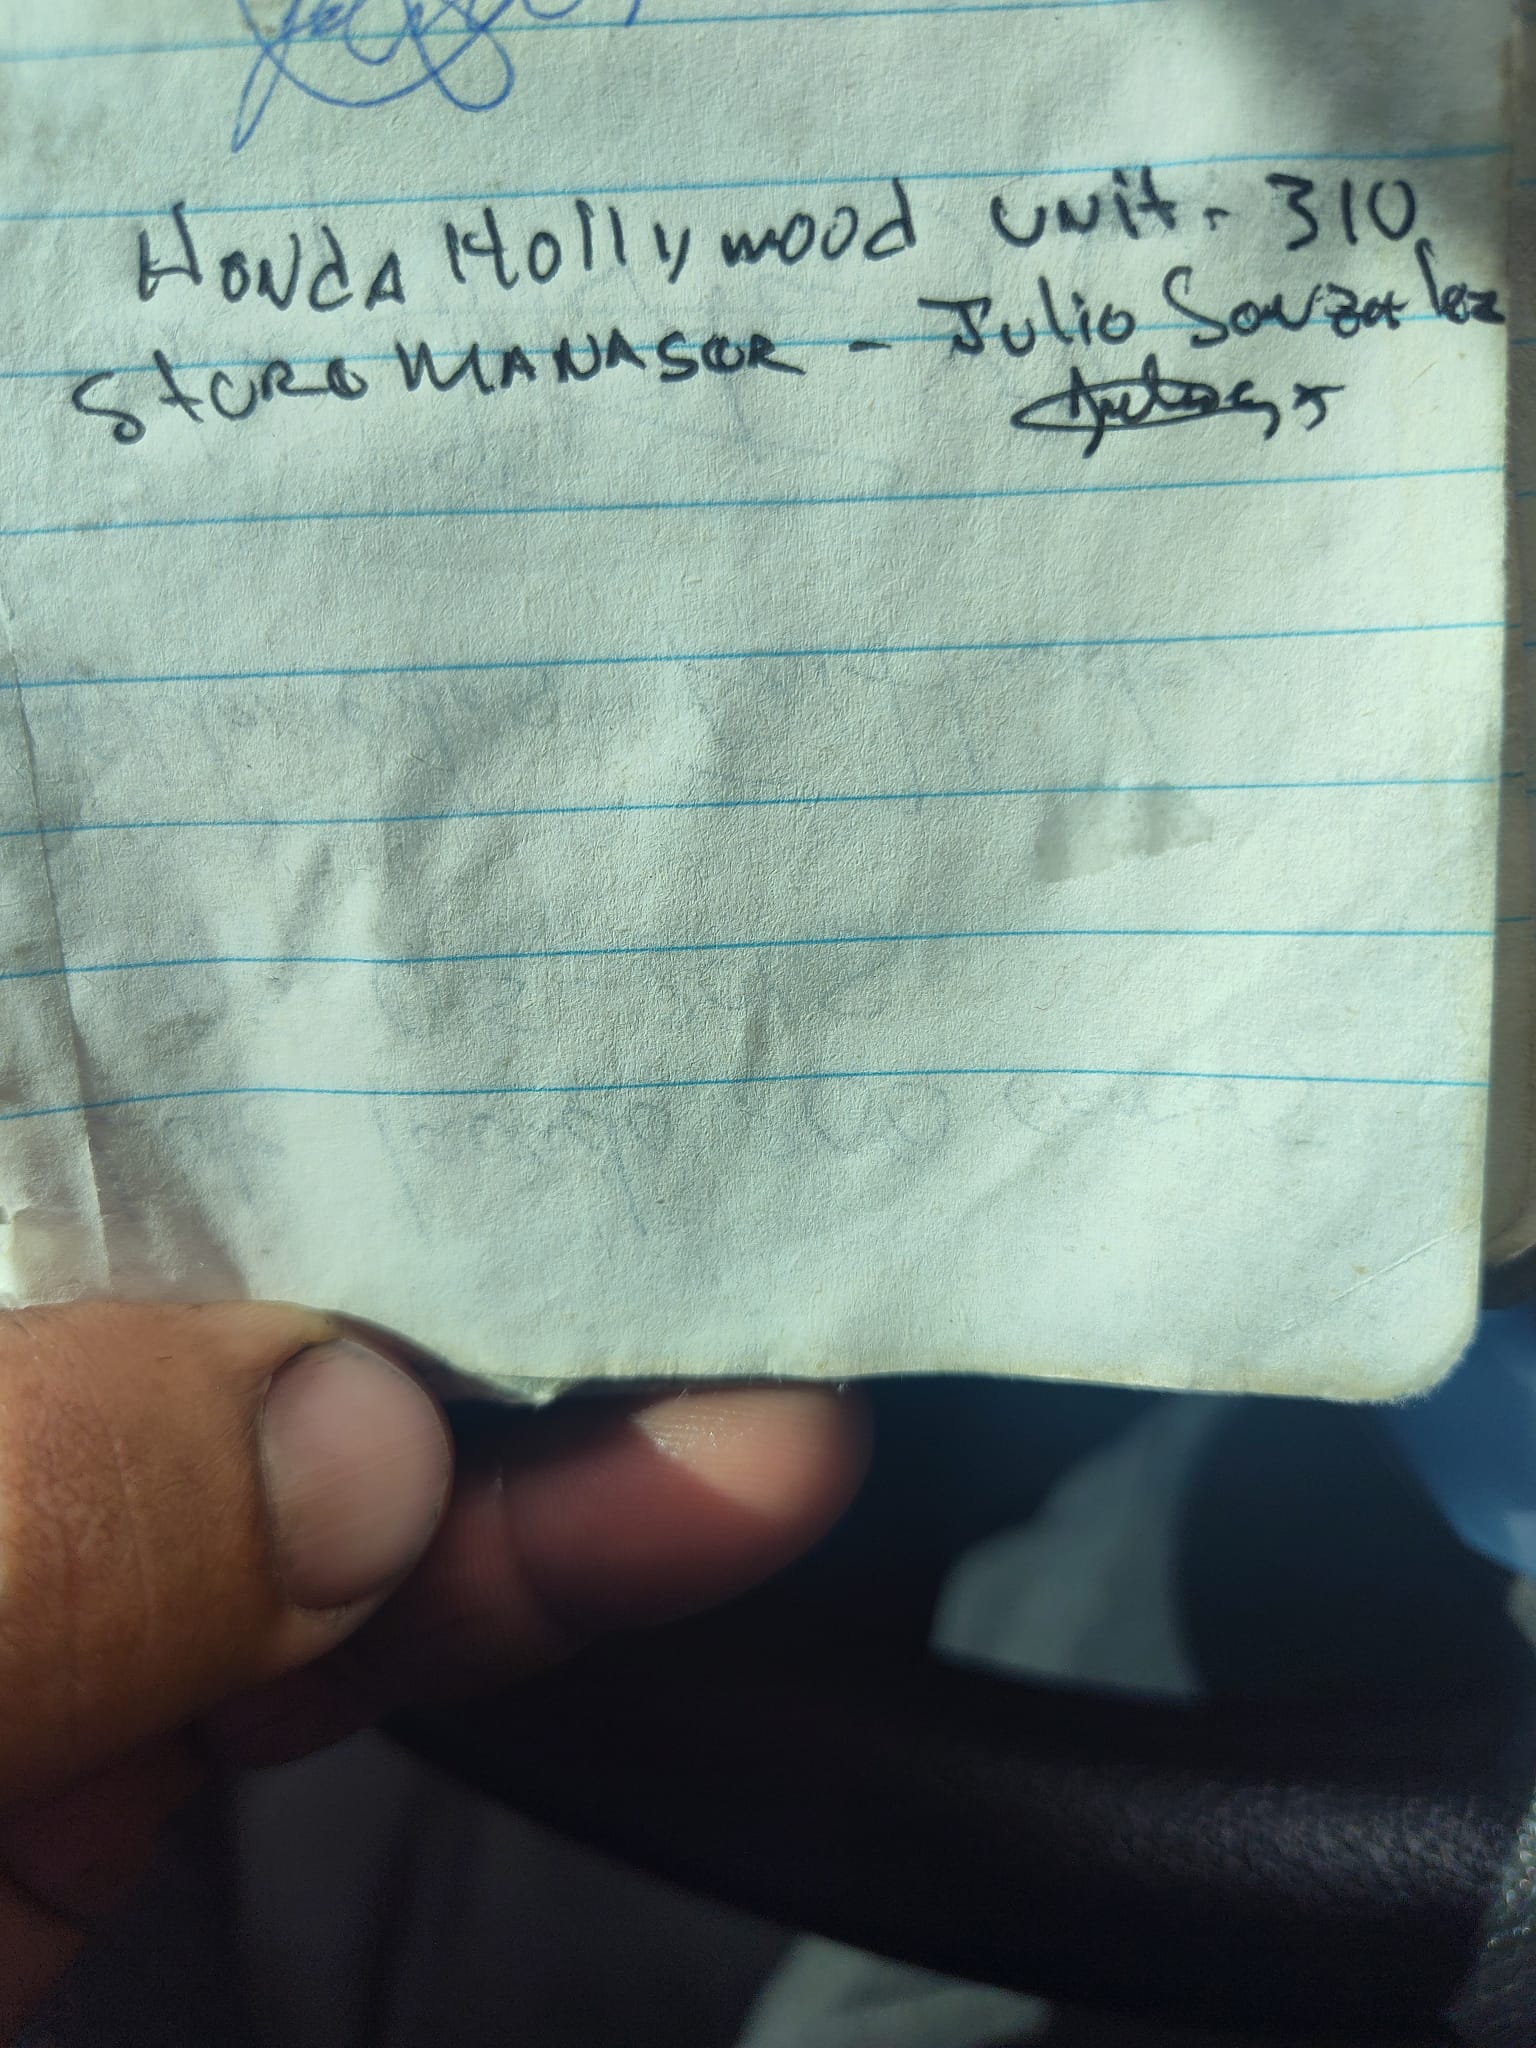 Honda Hollywood unit - 310
Store Manager - Julio Gonzalez